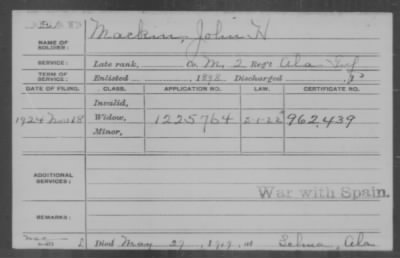 NAME OF SOLDIER: Mackin, John H
SERVICE: Late rank, Co M, 2 Reg't Ala Inf
TERM OF SERVICE: Enlisted 1898 Discharged , 9
DATE OF FILING. CLASS. APPLICATION NO. LAW. CERTIFICATE NO.
Invalid,
1924 Nov 18 Widow, 1225764 2-1-22 962,439
Minor,
ADDITIONAL SERVICES:
War with Spain.
REMARKS:
Died May 29, 1919, at Selma, Ala